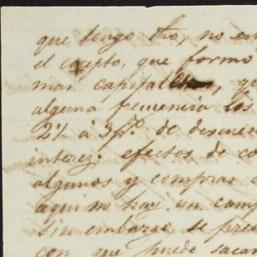 que tengo dho, no em
el exepto, que formo
mas capitales, qu
alguna
2% á 3p%. de descuen
interez: efectos de co
algunos y comprar
aqui me hace un camp
Sin embargo se pres
con que puede sacar